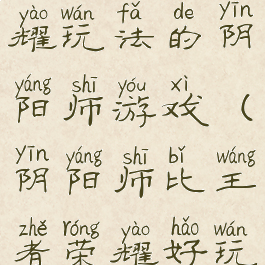 yào wán fǎ de yīn
耀玩法的阴
yáng shī yóu xì
阳师游戏（
yīn yáng shī bǐ wáng
阴阳师比王
zhě róng yào hǎo wán
者荣耀好玩